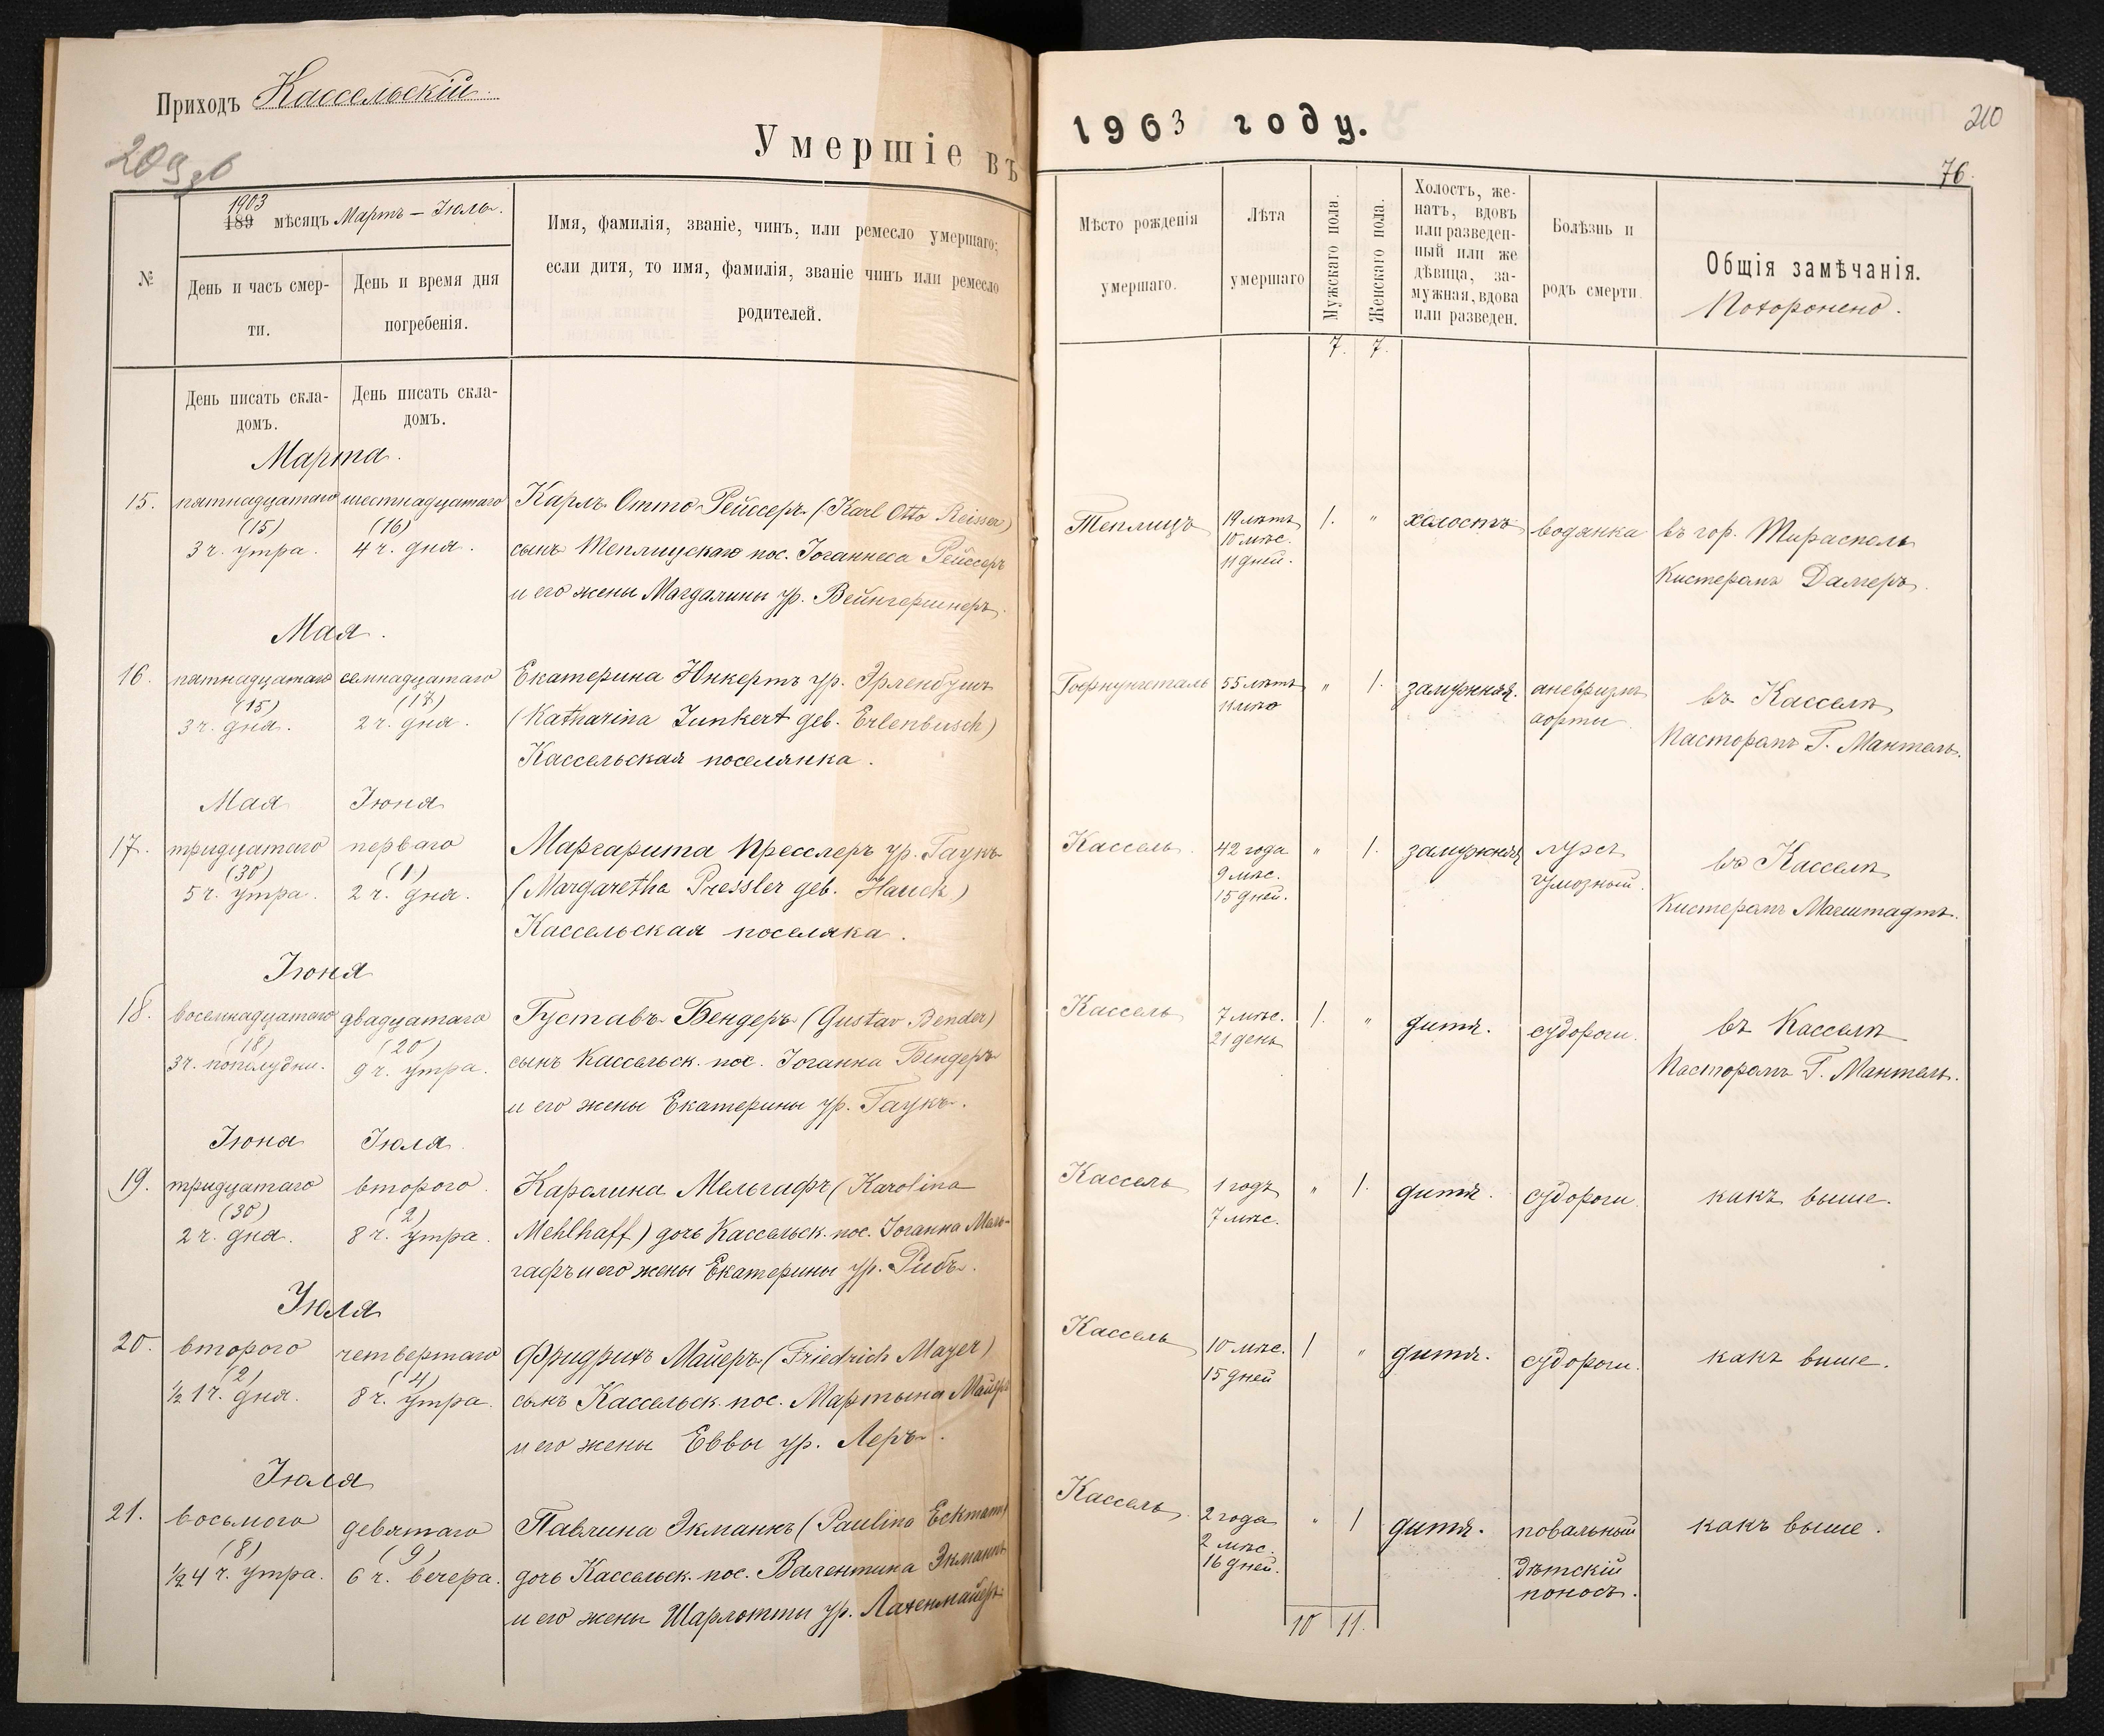 Приходъ Кассельскій.
209 об
Умершіе въ
1903
189 мѣсяцъ Мартъ – Іюль.
№
День и часъ смер-
ти.
День и время дня
погребенія.
Имя, фамилія, званіе, чинъ, или ремесло умершаго;
если дитя, то имя, фамилія, званіе чинъ или ремесло
родителей.
День писать скла-
домъ.
День писать скла-
домъ.
Марта.
15. пятнадцатаго шестнадцатаго Карлъ Отто Рейссеръ (Karl Otto Reisser)
(15) (16)
3 ч. утра. 4 ч. дня. сынъ Теплицскаго пос. Іоганнеса Рейссеръ
и его жены Магдалины ур. Вейнгертнеръ.
Мая.
16. пятнадцатаго семнадцатаго Екатерина Юнкертъ ур. Эрленбушъ
(15) (17)
3 ч. дня. 2 ч. дня. (Katharina Junkert geb. Erlenbusch)
Кассельская поселянка.
Мая Іюня
17. тридцатаго перваго Маргарита Пресслеръ ур. Гаукъ
(30) (1)
5 ч. утра. 2 ч. дня. (Margaretha Pressler geb. Hauck)
Кассельская поселяка.
Іюня
18. восемнадцатаго двадцатаго Густавъ Бендеръ (Gustav Bender)
(18) (20)
3 ч. пополудни. 9 ч. утра. сынъ Кассельск. пос. Іоганна Бендеръ
и его жены Екатерины ур. Гаукъ.
Іюня Іюля
19. тридцатаго второго Каролина Мельгафъ (Karolina
(30) (2)
2 ч. дня. 8 ч. утра. Mehlhaff) дочь Кассельск. пос. Іоганна Мель-
гафъ и его жены Екатерины ур. Рибъ.
Іюля
20. второго четвертаго Фридрихъ Майеръ (Friedrich Mayer)
(2) (4)
½ 1 ч. дня. 8 ч. утра. сынъ Кассельск. пос. Мартына Майеръ
и его жены Еввы ур. Леръ.
Іюля
21. восьмого девятаго Павлина Экманнъ (Paulina Eckmann)
(8) (9)
½ 4 ч. утра. 6 ч. вечера. дочь Кассельск. пос. Валентина Экманнъ
и его жены Шарлотты ур. Лахенмайеръ.
1903 году.
210
76.
Мѣсто рожденія
умершаго.
Лѣта
умершаго
Мужскаго пола.
Женскаго пола.
Холостъ, же-
натъ, вдовъ
или разведен-
ный или же
дѣвица, за-
мужная, вдова
или разведен.
Болѣзнь и
родъ смерти.
Общія замѣчанія.
Похоронено.
7. 7.
Теплицъ 19 лѣтъ 1. " холостъ водянка въ гор. Тирасполь
10 мѣс.
11 дней. Кистеромъ Далеръ.
Гофнунгсталь 55 лѣтъ " 1. замужняя. аневризмъ въ Касселѣ
аорты Пасторомъ Г. Мантель.
Кассель. 42 года " 1. замужняя въ Касселѣ
9 мѣс.
15 дней. Кистеромъ Магштадтъ.
Кассель 7 мѣс. 1. " дитя. судороги. въ Касселѣ
21 день Пасторомъ Г. Мантель.
Кассель 1 годъ " 1. дитя. судороги. какъ выше.
7 мѣс.
Кассель 10 мѣс. 1 " дитя. судороги. какъ выше.
15 дней
Кассель. 2 года " 1 дитя. повальный какъ выше.
2 мѣс. дѣтскій
16 дней. поносъ.
10 11.